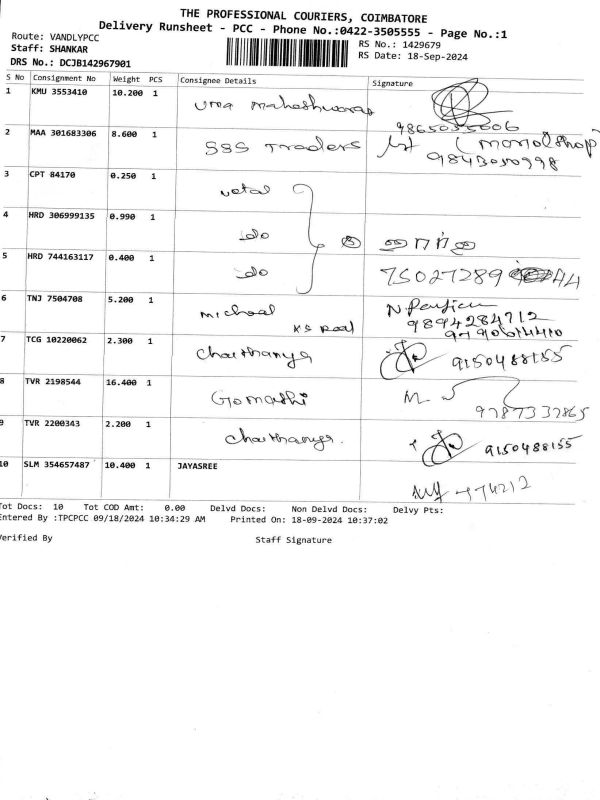 THE PROFESSIONAL COURIERS, COIMBATORE
Delivery Runsheet - PCC - Phone No.:0422-3505555 - Page No.:1
Route: VANDLYPCC
Staff: SHANKAR
DRS No.: DCJB142967901
RS No.: 1429679
RS Date: 18-Sep-2024
S No Consignment No Weight PCS Consignee Details Signature
1 KMU 3553410 10.200 1 Uma Maheshwaran
9865035006
2 MAA 301683306 8.600 1 SSS Traders
9843050998
3 CPT 84170 0.250 1
4 HRD 306999135 0.990 1 do
5 HRD 744163117 0.400 1 do 75027289 44
6 TNJ 7504708 5.200 1 Michael
KS Road
9894284712
7 TCG 10220062 2.300 1 Chaithanya 9150488155
8 TVR 2198544 16.400 1 Gomathi
9787337865
9 TVR 2200343 2.200 1 Chaithanya. 9150488155
10 SLM 354657487 10.400 1 JAYASREE
Tot Docs: 10 Tot COD Amt: 0.00 Delvd Docs: Non Delvd Docs: Delvy Pts:
Entered By :TPCPCC 09/18/2024 10:34:29 AM Printed On: 18-09-2024 10:37:02
Verified By Staff Signature